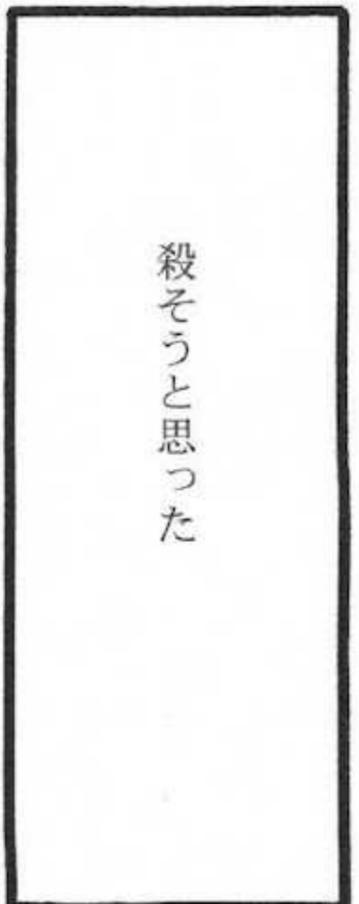 殺そうと思った